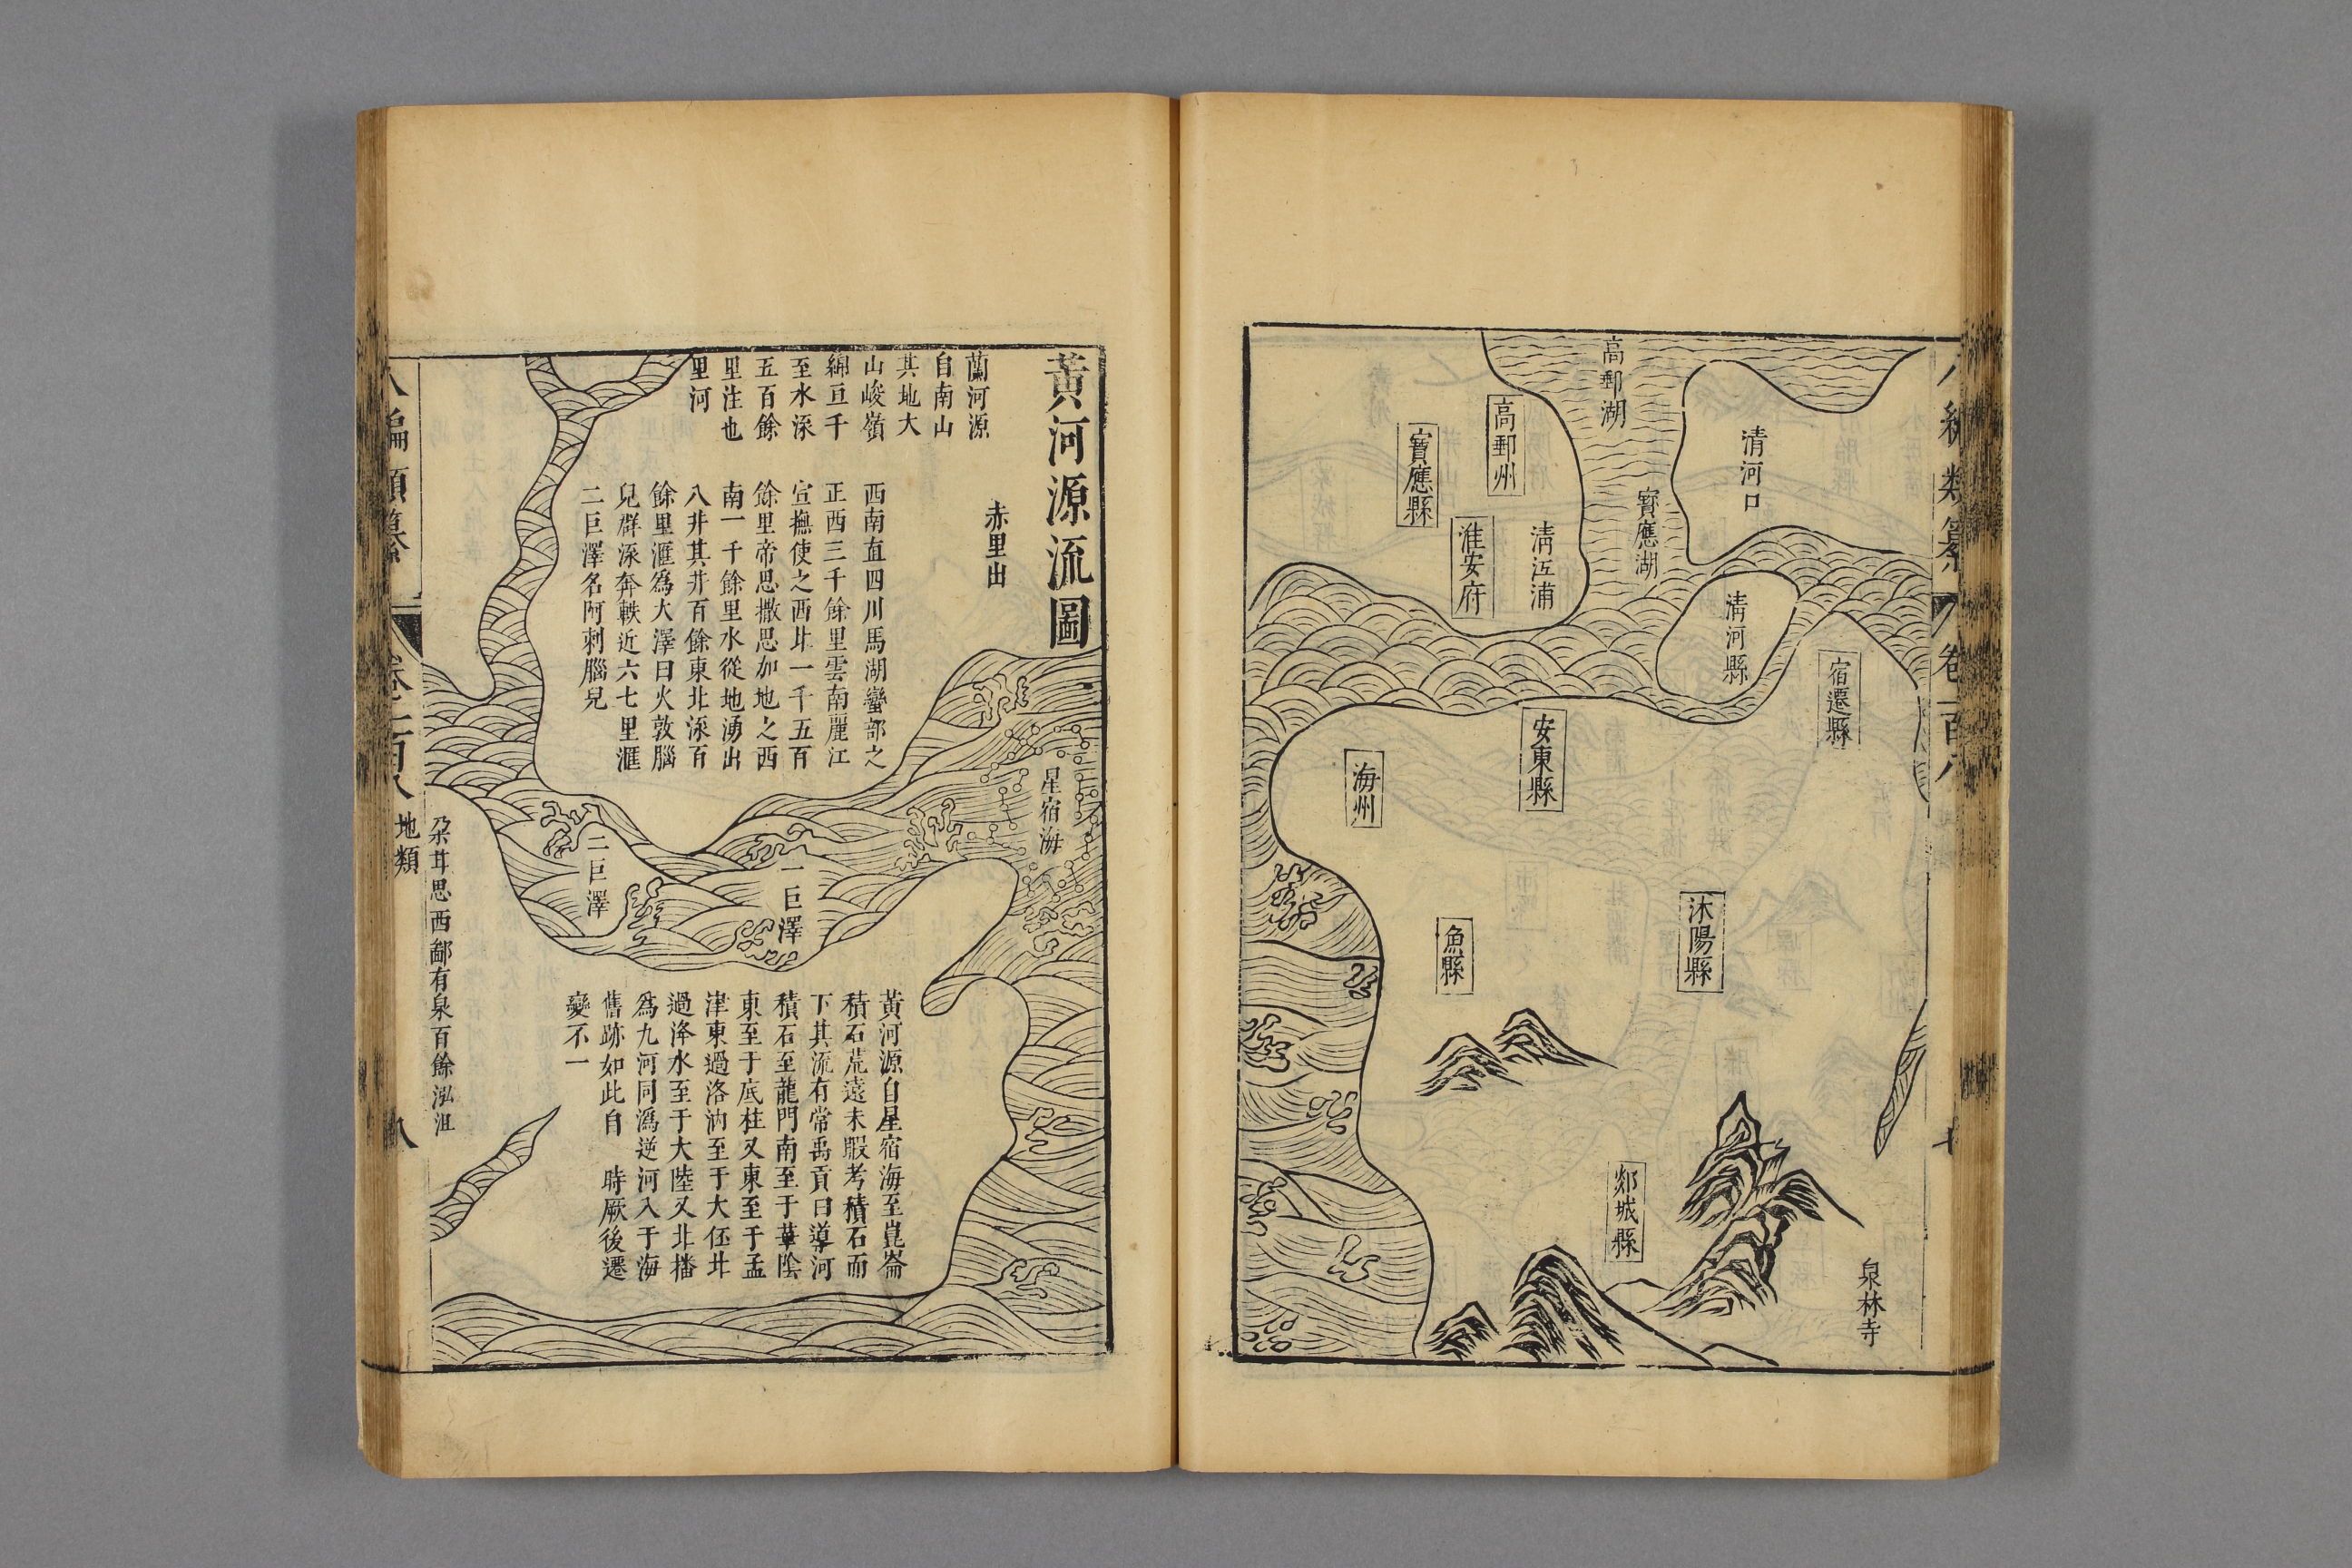 高郵湖
清河口
高郵州
寶應縣
寶應湖
清江浦
淮安府
清河縣
宿遷縣
安東縣
海州
沐陽縣
魚縣
郯城縣
泉林寺
黃河源流圖
蘭河源
自南山
其地大
山峻嶺
綿亘千
至水泺
五百餘
里注也
里河
赤里出
西南直四川馬湖蠻部之
正西三千餘里雲南麗江
宣撫使之西北一千五百
餘里帝思撒思加地之西
南一千餘里水從地湧出
八井其井百餘東北泺百
餘里滙爲大澤曰火敦腦
兒群泺奔軼近六七里滙
二巨澤名阿刺腦兒
星宿海
一巨澤
二巨澤
黃河源自星宿海至崑崙
積石荒遠未暇考積石而
下其流有常禹貢曰導河
積石至龍門南至于華陰
東至于底柱又東至于孟
津東過洛汭至于大伾北
過洚水至于大陸又北播
爲九河同爲逆河入于海
舊跡如此自 時厥後遷
變不一
朶甘思西鄙有泉百餘泓沮
編類纂
地類
八